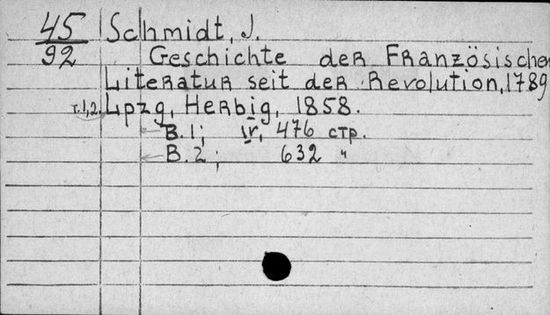 45 Schmidt, J.
92 Geschichte der Französischen
Literatur seit der Revolution, 1789
т.1,2. Lpzg, Herbig, 1858.
B. 1; IV, 476 стр.
B. 2; 632 "